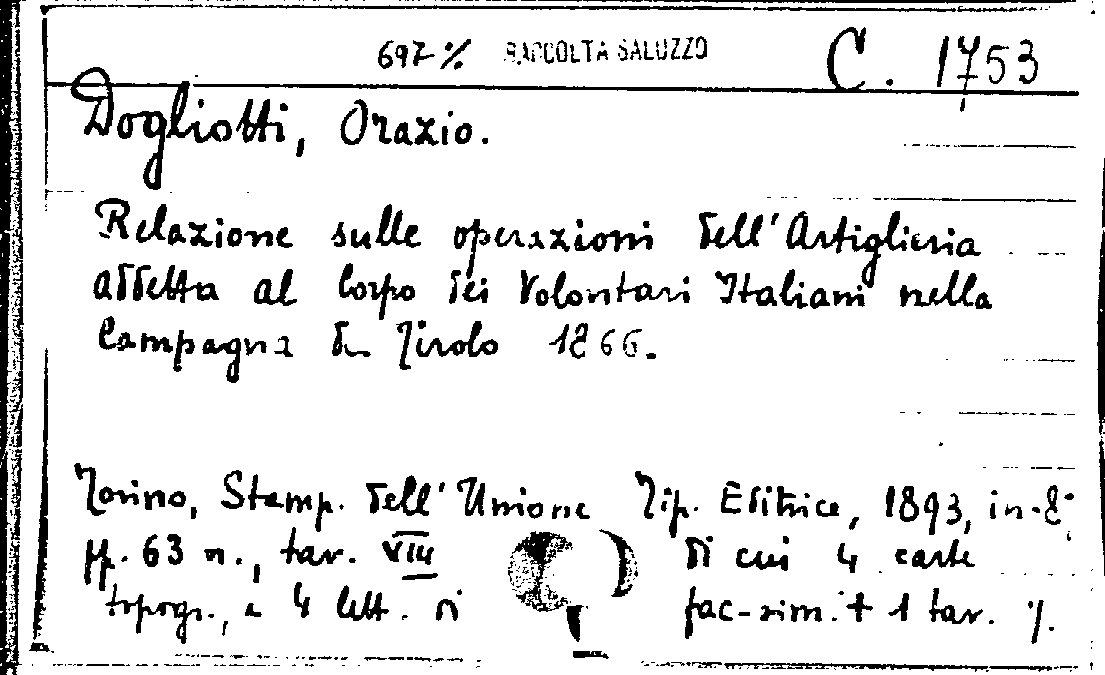 697 % RACCOLTA SALUZZO C. 1753
Dogliotti, Orazio.
Relazione sulle operazioni dell'Artiglieria
addetta al Corpo dei Volontari Italiani nella
Campagna di Tirolo 1866.
Torino, Stamp. dell'Unione Tip. Editrice, 1893, in-8°
pp. 63 n., tav. VIII di cui 4 carte
topogr., e 4 lett. di fac-sim. + 1 tav. /.